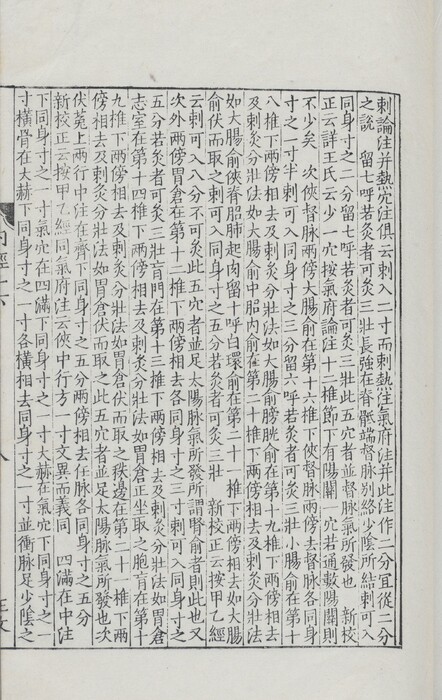 刺論注并熱穴注俱云刺入二寸而刺熱注氣府注并此注作二分宜從二分
之說　留七呼若灸者可灸三壯長強在脊骶端督脉別絡少陰所結刺可入
同身寸之二分留七呼若灸者可灸三壯此五穴者並督脉氣所發也　新校
正云詳王氏云少一穴按氣府論注十二椎節下有陽關一穴若通數陽關則
不少矣　次俠督脉兩傍大腸俞在第十六椎下俠督脉兩傍去督脉各同身
寸之一寸半刺可入同身寸之三分留六呼若灸者可灸三壯小腸俞在第十
八椎下兩傍相去及刺灸分壯法如大腸俞膀胱俞在第十九椎下兩傍相去
及刺灸分壯法如大腸俞中䏚內俞在第二十椎下兩傍相去及刺灸分壯法
如大腸俞俠脊䏚胂起肉留十呼白環俞在第二十一椎下兩傍相去如大腸
俞伏而取之刺可入同身寸之五分若灸者可灸三壯　新校正云按甲乙經
云刺可入八分不可灸此五穴者並足太陽脉氣所發所謂腎俞者則此也又
次外兩傍胃倉在第十二椎下兩傍相去各同身寸之三寸刺可入同身寸之
五分若灸者可灸三壯肓門在第十三椎下兩傍相去及刺灸分壯法如胃倉
志室在第十四椎下兩傍相去及刺灸分壯法如胃倉正坐取之胞肓在第十
九椎下兩傍相去及刺灸分壯法如胃倉伏而取之秩邊在第二十一椎下兩
傍相去及刺灸分壯法如胃倉伏而取之此五穴者並足太陽脉氣所發也次
伏菟上兩行中注在齊下同身寸之五分兩傍相去任脉各同身寸之五分
新校正云按甲乙經同氣府注云俠中行方一寸文異而義同　四滿在中注
下同身寸之一寸氣穴在四滿下同身寸之一寸大赫在氣穴下同身寸之一
寸橫骨在大赫下同身寸之一寸各橫相去同身寸之一寸並衝脉足少陰之